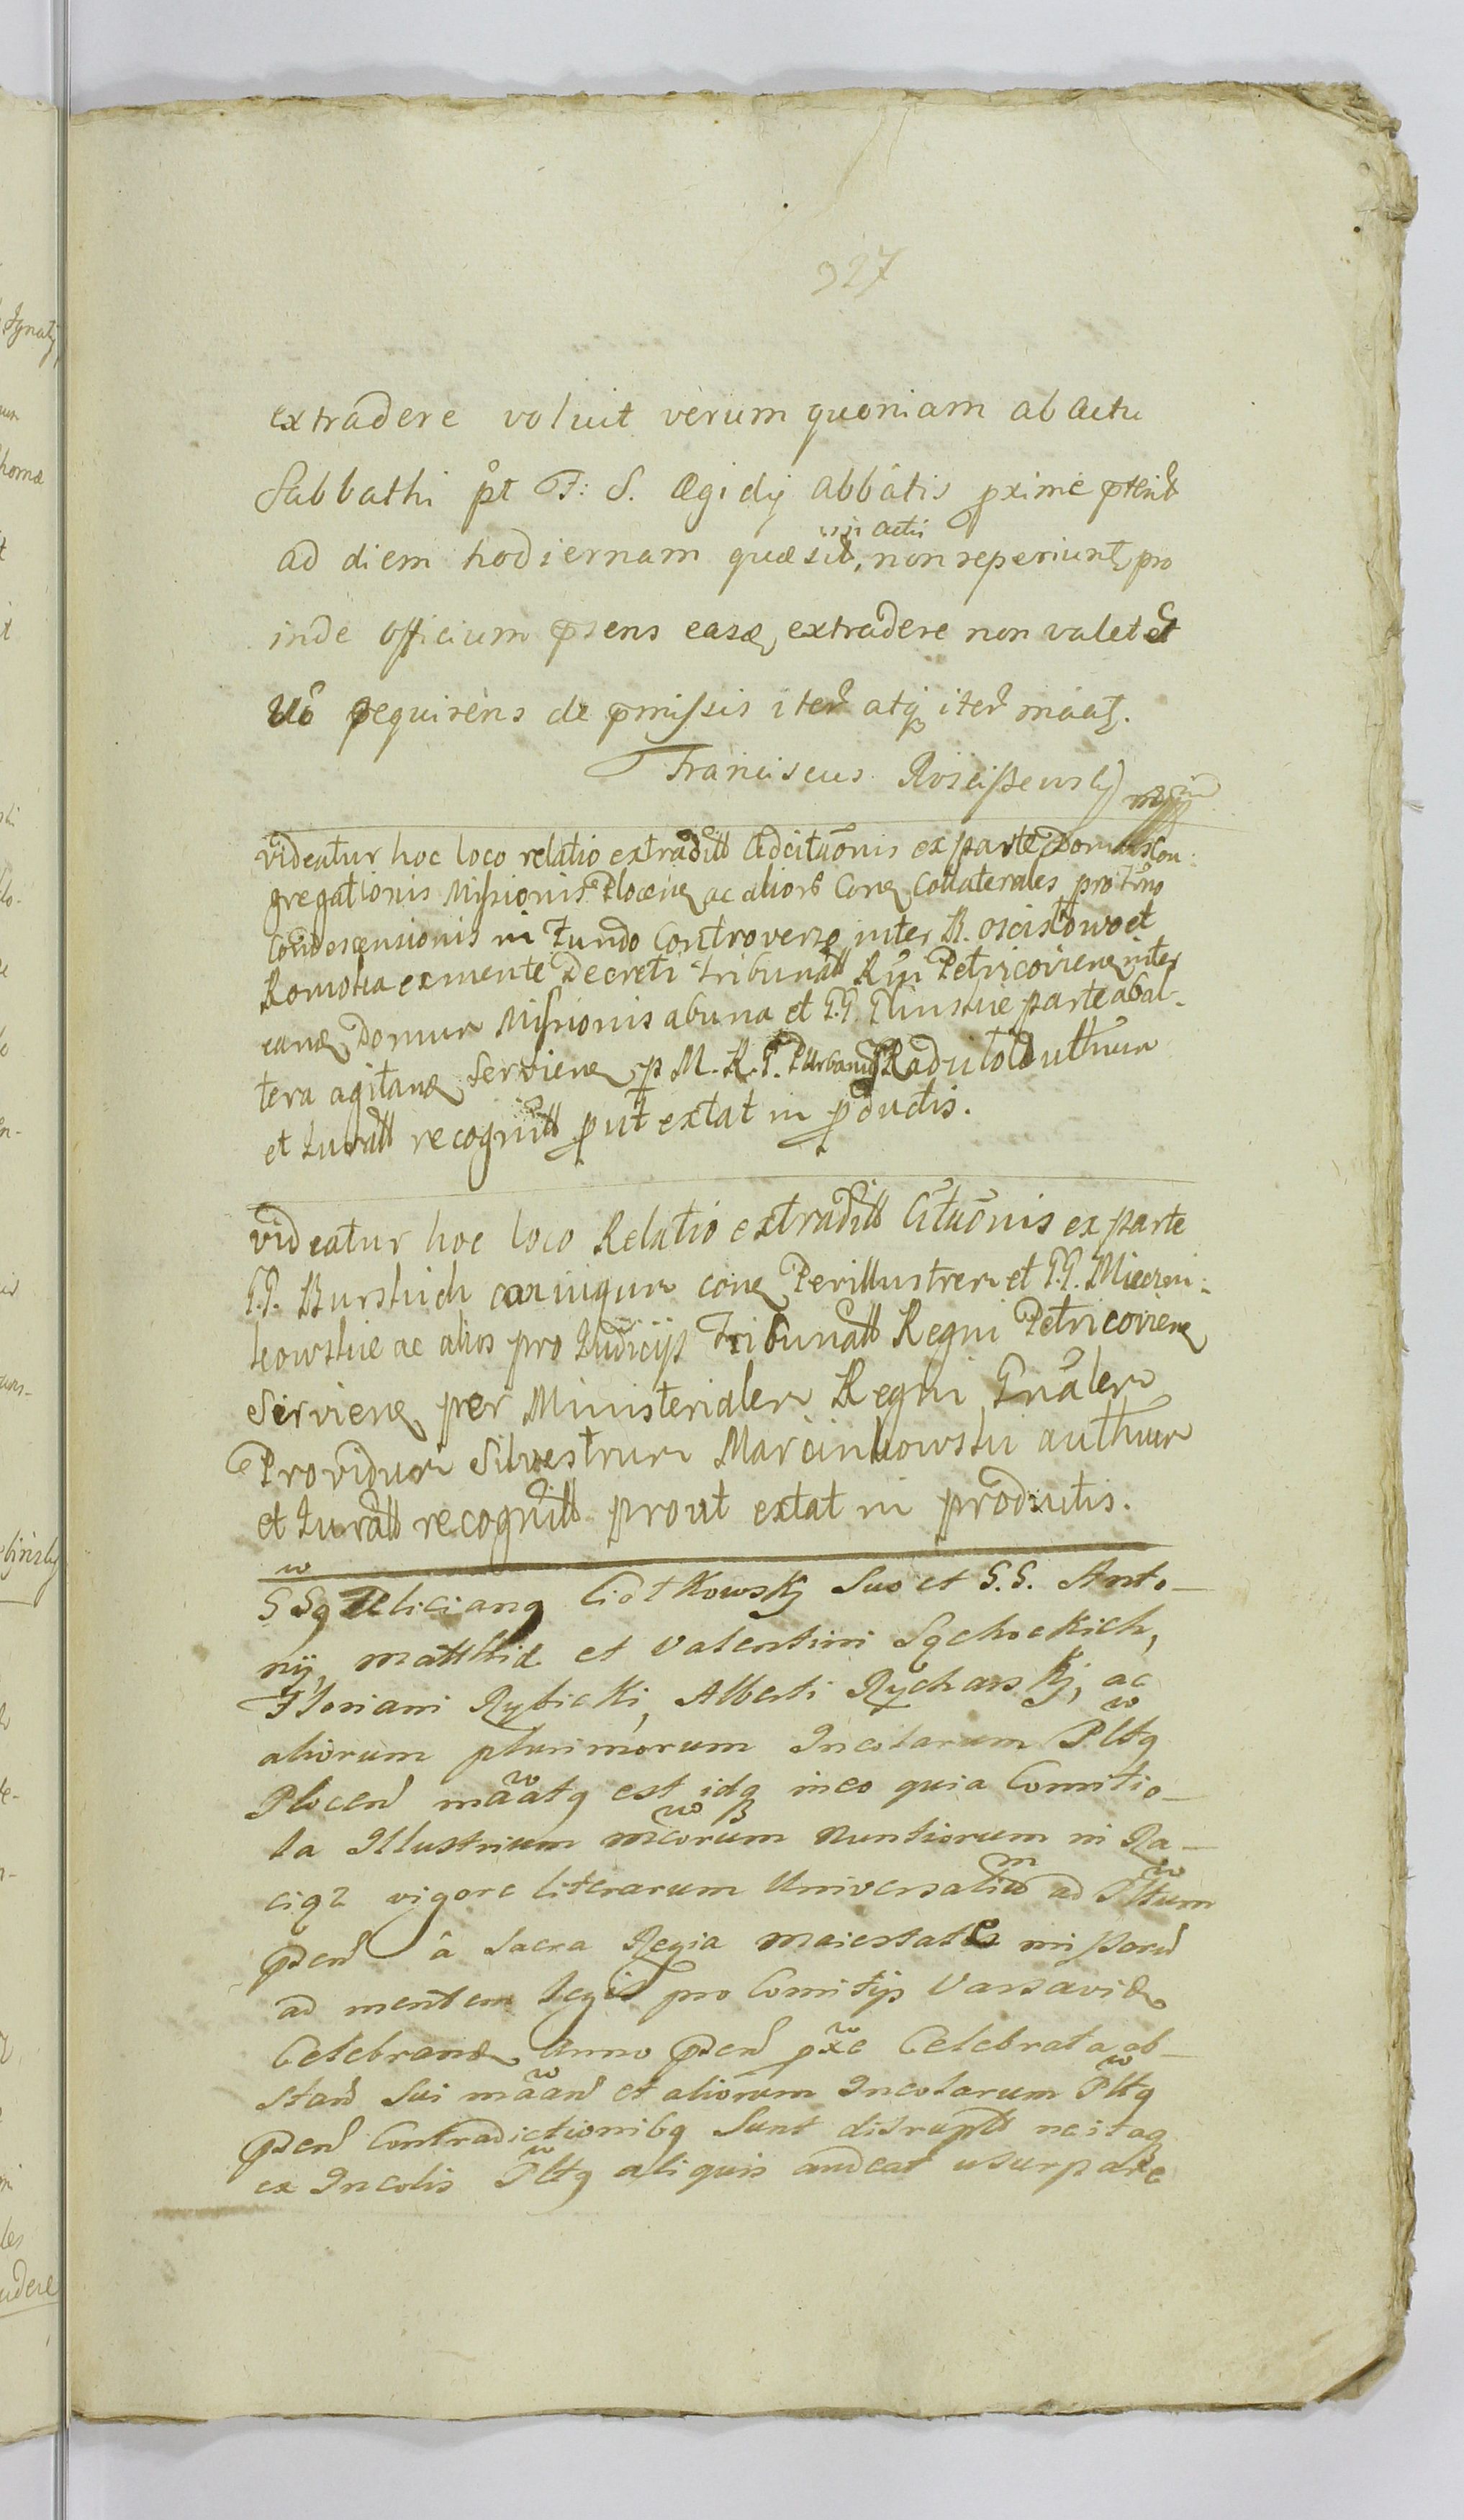 327
extradere voluit verum quoniam ab actu
Sabbathi pt F: S. Ægidÿ Abbatis pxime pterit
in actu
ad diem hodiernam quæsit, non reperiunt, pro
inde officium psens easd, extradere non valet et
Uo requirens de pmissis iter atq iter maat.
Franciscus Rościszewsky mp
Videatur hoc loco relatio extraditt Adcitaonis ex parte Domus Con:
gregationis Missionis Plocen ac alior Con Collaterales pro Tmo
Condescensionis in Fundo Controverso inter B. Oscisłowo et
Romoka ex mente Decreti Tribunalt Rni Petricovien inter
eand Domum Missionis ab una et G.G. Glinskie parte ab al-
tera agitand, servien p M. R. G. P Urbanu Radulto Duthum
et Juratt recognitt put extat in pductis.
Videatur hoc loco Relatio extraditt Citaonis ex parte
G.G. Burskich conjugum con Perillustrem et G.G. Mieczni:
kowskie ac alios pro Judicÿs Tribunalt Regni Petricovien
servien per Ministerialem Regni Gnalem
Providum Silvestrum Marcinkowski authum
et Juratt recognitt prout extat in productis.
G Sq Felicianq Ciółkowskj Suo et G.G. Anto-
nÿ, Matthiæ et Valentini Sęchockich,
Floriani Rybicki, Alberti Rycharskj, ac
aliorum plurimorum Incolarum Pltq
Plocen maatq est idq in eo quia Comitio-
la Illustrium mcorum Nuntiorum in Ra-
ciqz vigore literarum Universalium ad Pltum
psen â Sacra Regia Maiestate missoru
ad mentem Legis pro Comitÿs Varsaviæ
Celebrand Anno psen pxe Celebrata ob-
stan sui maan et aliorum Incolarum Pltq
psen Contradictionibq sunt disrupta ne itaq
ex Incolis Pltq aliquis audeat usurpare